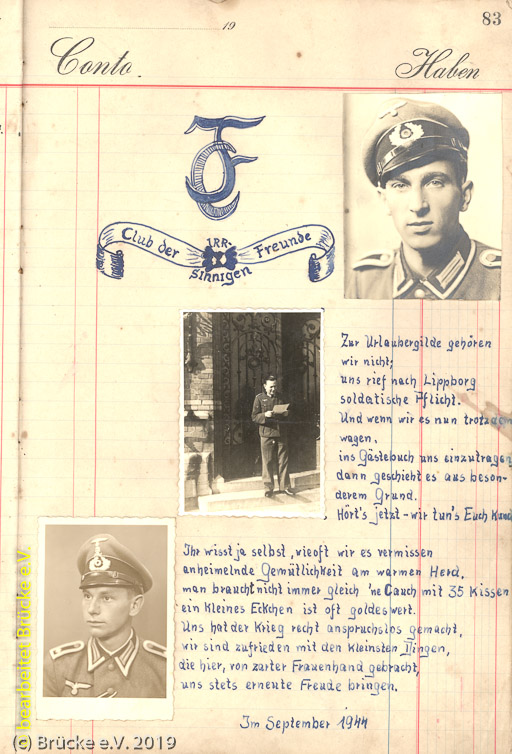 83
19
Conto.
Haben
Club der IRR-
sinnigen Freunde
Zur Urlaubergilde gehören
wir nicht,
uns rief nach Lippborg
soldatische Pflicht.
Und wenn wir es nun trotzdem
wagen,
ins Gästebuch uns einzutragen,
dann geschieht es aus beson-
derem Grund.
Hört's jetzt - wir tun's Euch kund
Ihr wisst ja selbst, wieoft wir es vermissen
anheimelnde Gemütlichkeit am warmen Herd,
man braucht nicht immer gleich 'ne Cauch mit 35 Kissen
ein kleines Eckchen ist oft goldeswert.
Uns hat der Krieg recht anspruchslos gemacht,
wir sind zufrieden mit den kleinsten Dingen,
die hier, von zarter Frauenhand gebracht,
uns stets erneute Freude bringen.
Im September 1944
© bearbeitet Brücke e.V.
(c) Brücke e.V. 2019